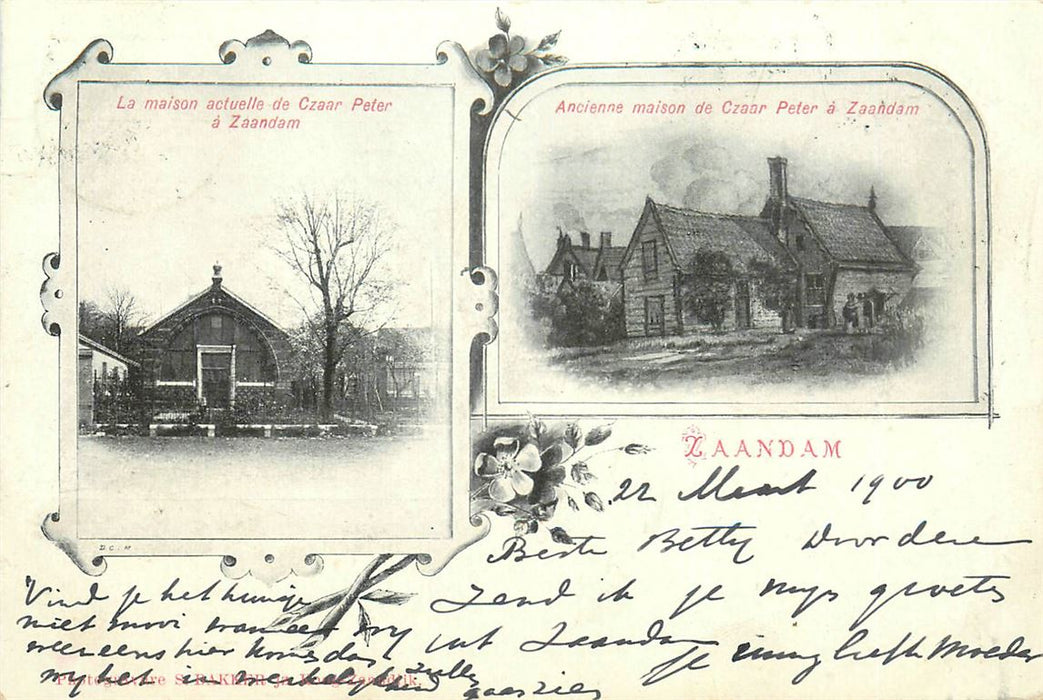 La maison actuelle de Czaar Peter
á Zaandam
Ancienne maison de Czaar Peter á Zaandam
ZAANDAM
22 Maart 1900
Beste Betty
Zend ik je mijn groeten
uit Zaandam
je innig liefh Moeder
Vind je het huisje
niet mooi wanneer
weer eens hier komt dan
wij het
Photogravure S. BAKKER Jz.